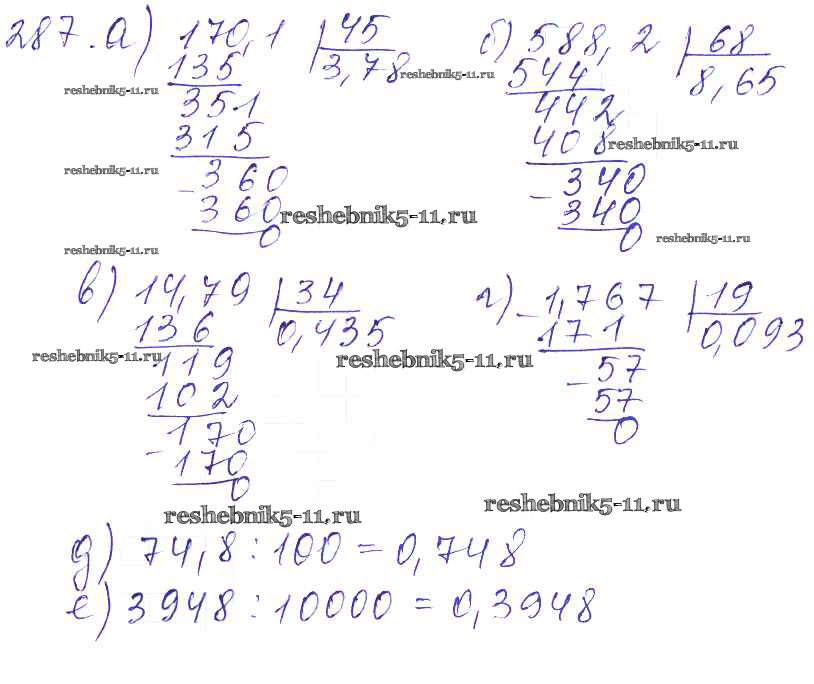 287. а) 170,1 | 45 б) 588,2 | 68
135 3,78 reshebnik5-11.ru 544 8,65
reshebnik5-11.ru 351 442
315 408 reshebnik5-11.ru
reshebnik5-11.ru - 360 - 340
360 reshebnik5-11.ru 340
reshebnik5-11.ru 0 0 reshebnik5-11.ru
в) 14,79 | 34 г) - 1,767 | 19
136 0,435 171 0,093
reshebnik5-11.ru 119 reshebnik5-11.ru - 57
102 57
- 170 0
170
0
reshebnik5-11.ru reshebnik5-11.ru
д) 74,8 : 100 = 0,748
е) 3948 : 10000 = 0,3948